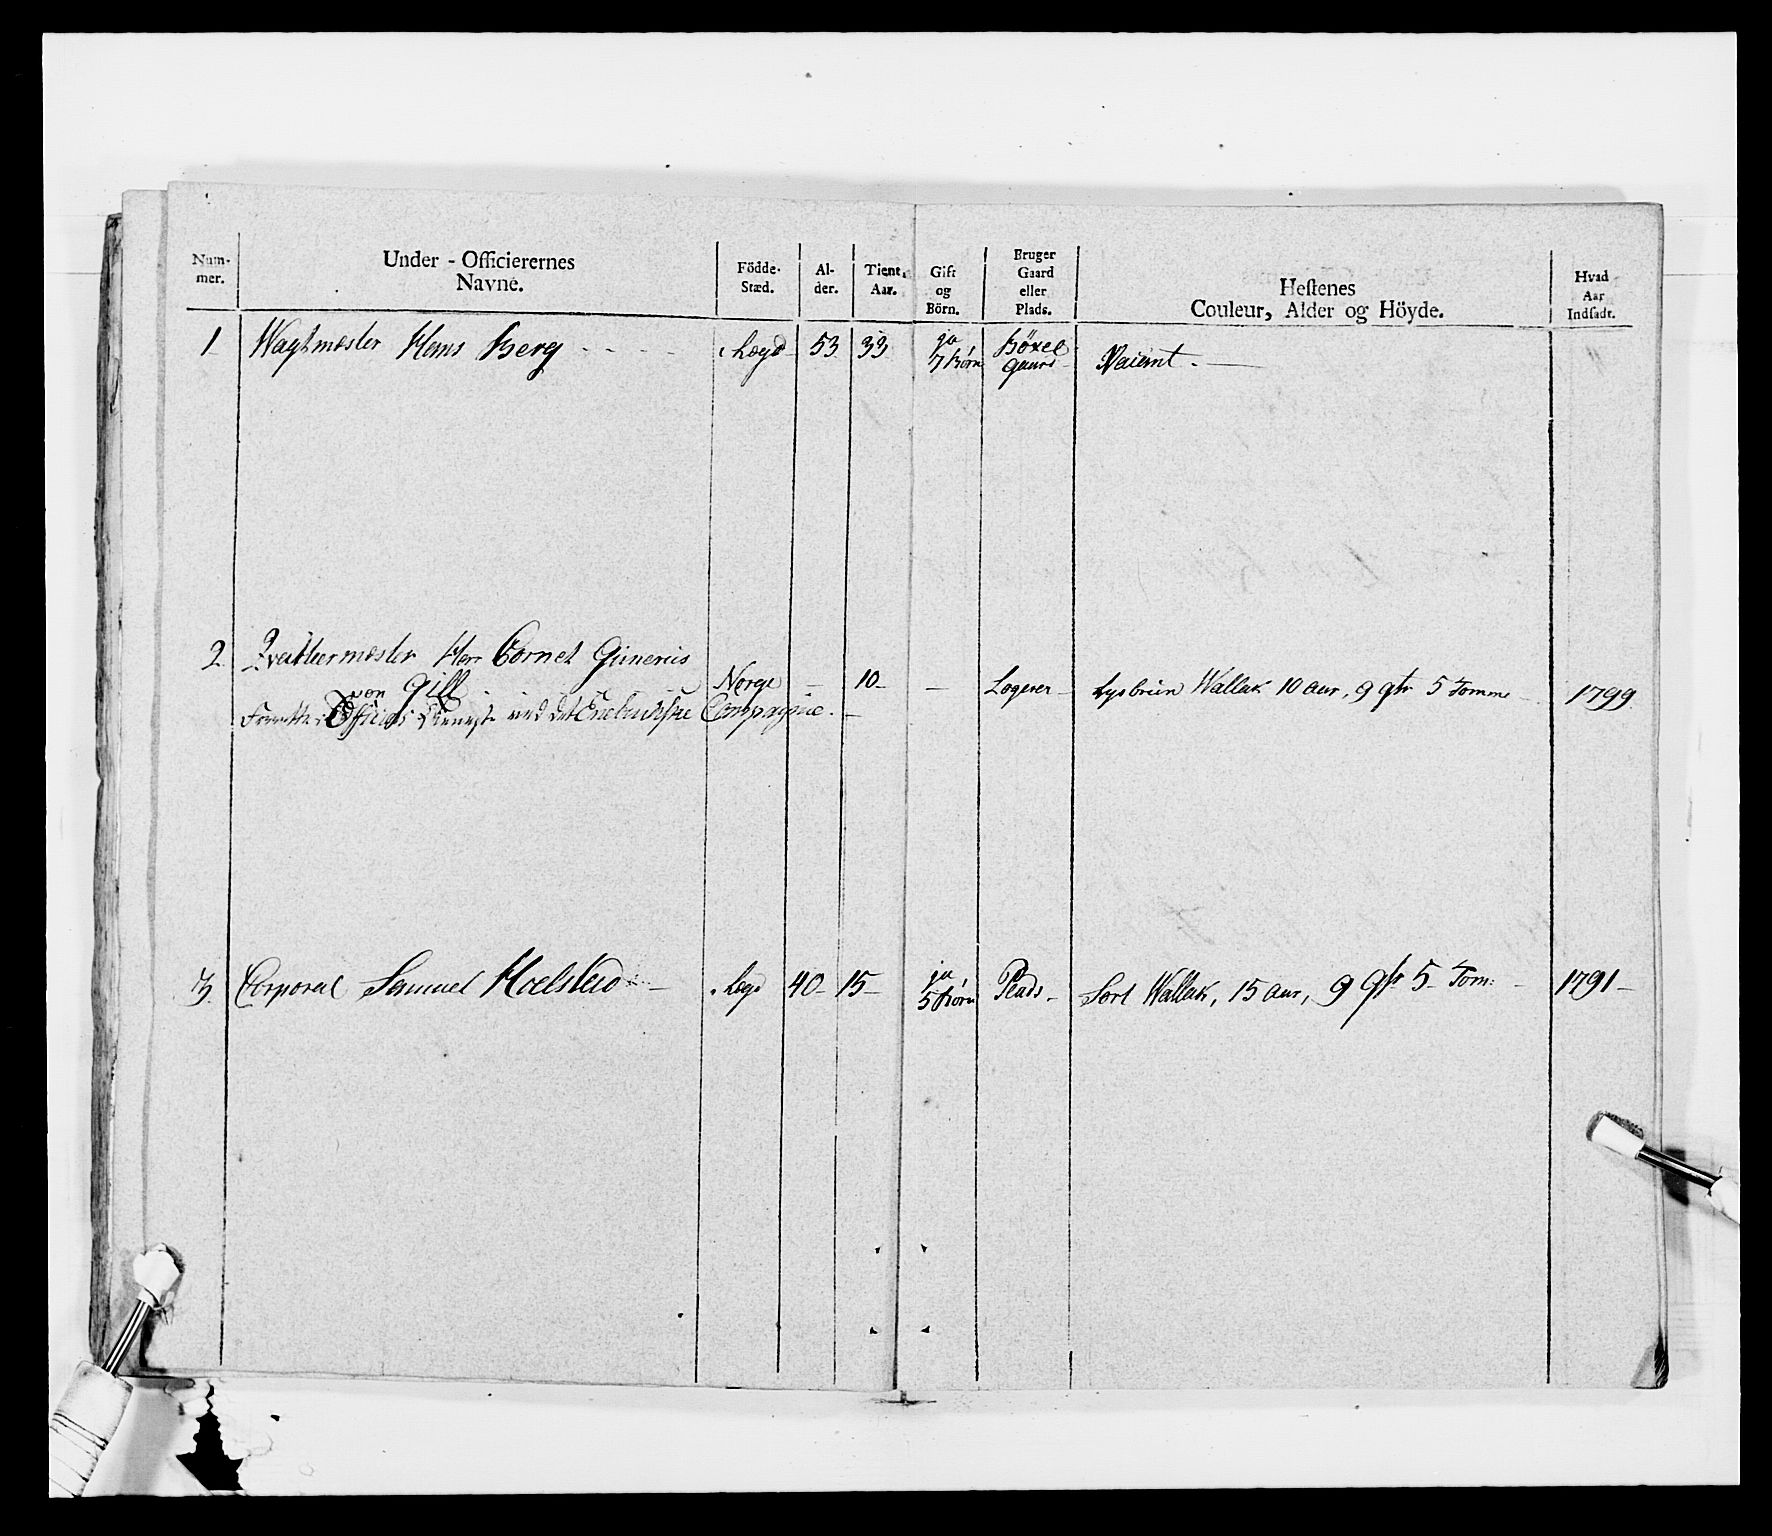 Num-
mer.
Under - Officierernes
Navne.
Födde-
Stæd.
Al-
der.
Tient.
Aar.
Gift
og
Börn.
Bruger
Gaard
eller
Plads.
Hestenes
Couleur, Alder og Höyde.
Hvad
Aar
Indsadt.
1 Wagtmester Hans Berg - - - - Lægd 53 33 ja 7 börn Böxel gaard - Vacant. -
2 Qvarteermester Herr Cornet Gunerus
von Gill - Norge - 10 - - Logerer - Lysbruun Wallak 10 aar, 9 qtr 5 Tomme - 1799
Forretter Officiers Dieneste ved det Enebackske Compagnie. -
3 Corporal Samuel Holstad - Lægd 40 - 15 - ja 5 börn Plads - Sort Wallak, 15 aar, 9 qtr 5 Tom: - 1791 -